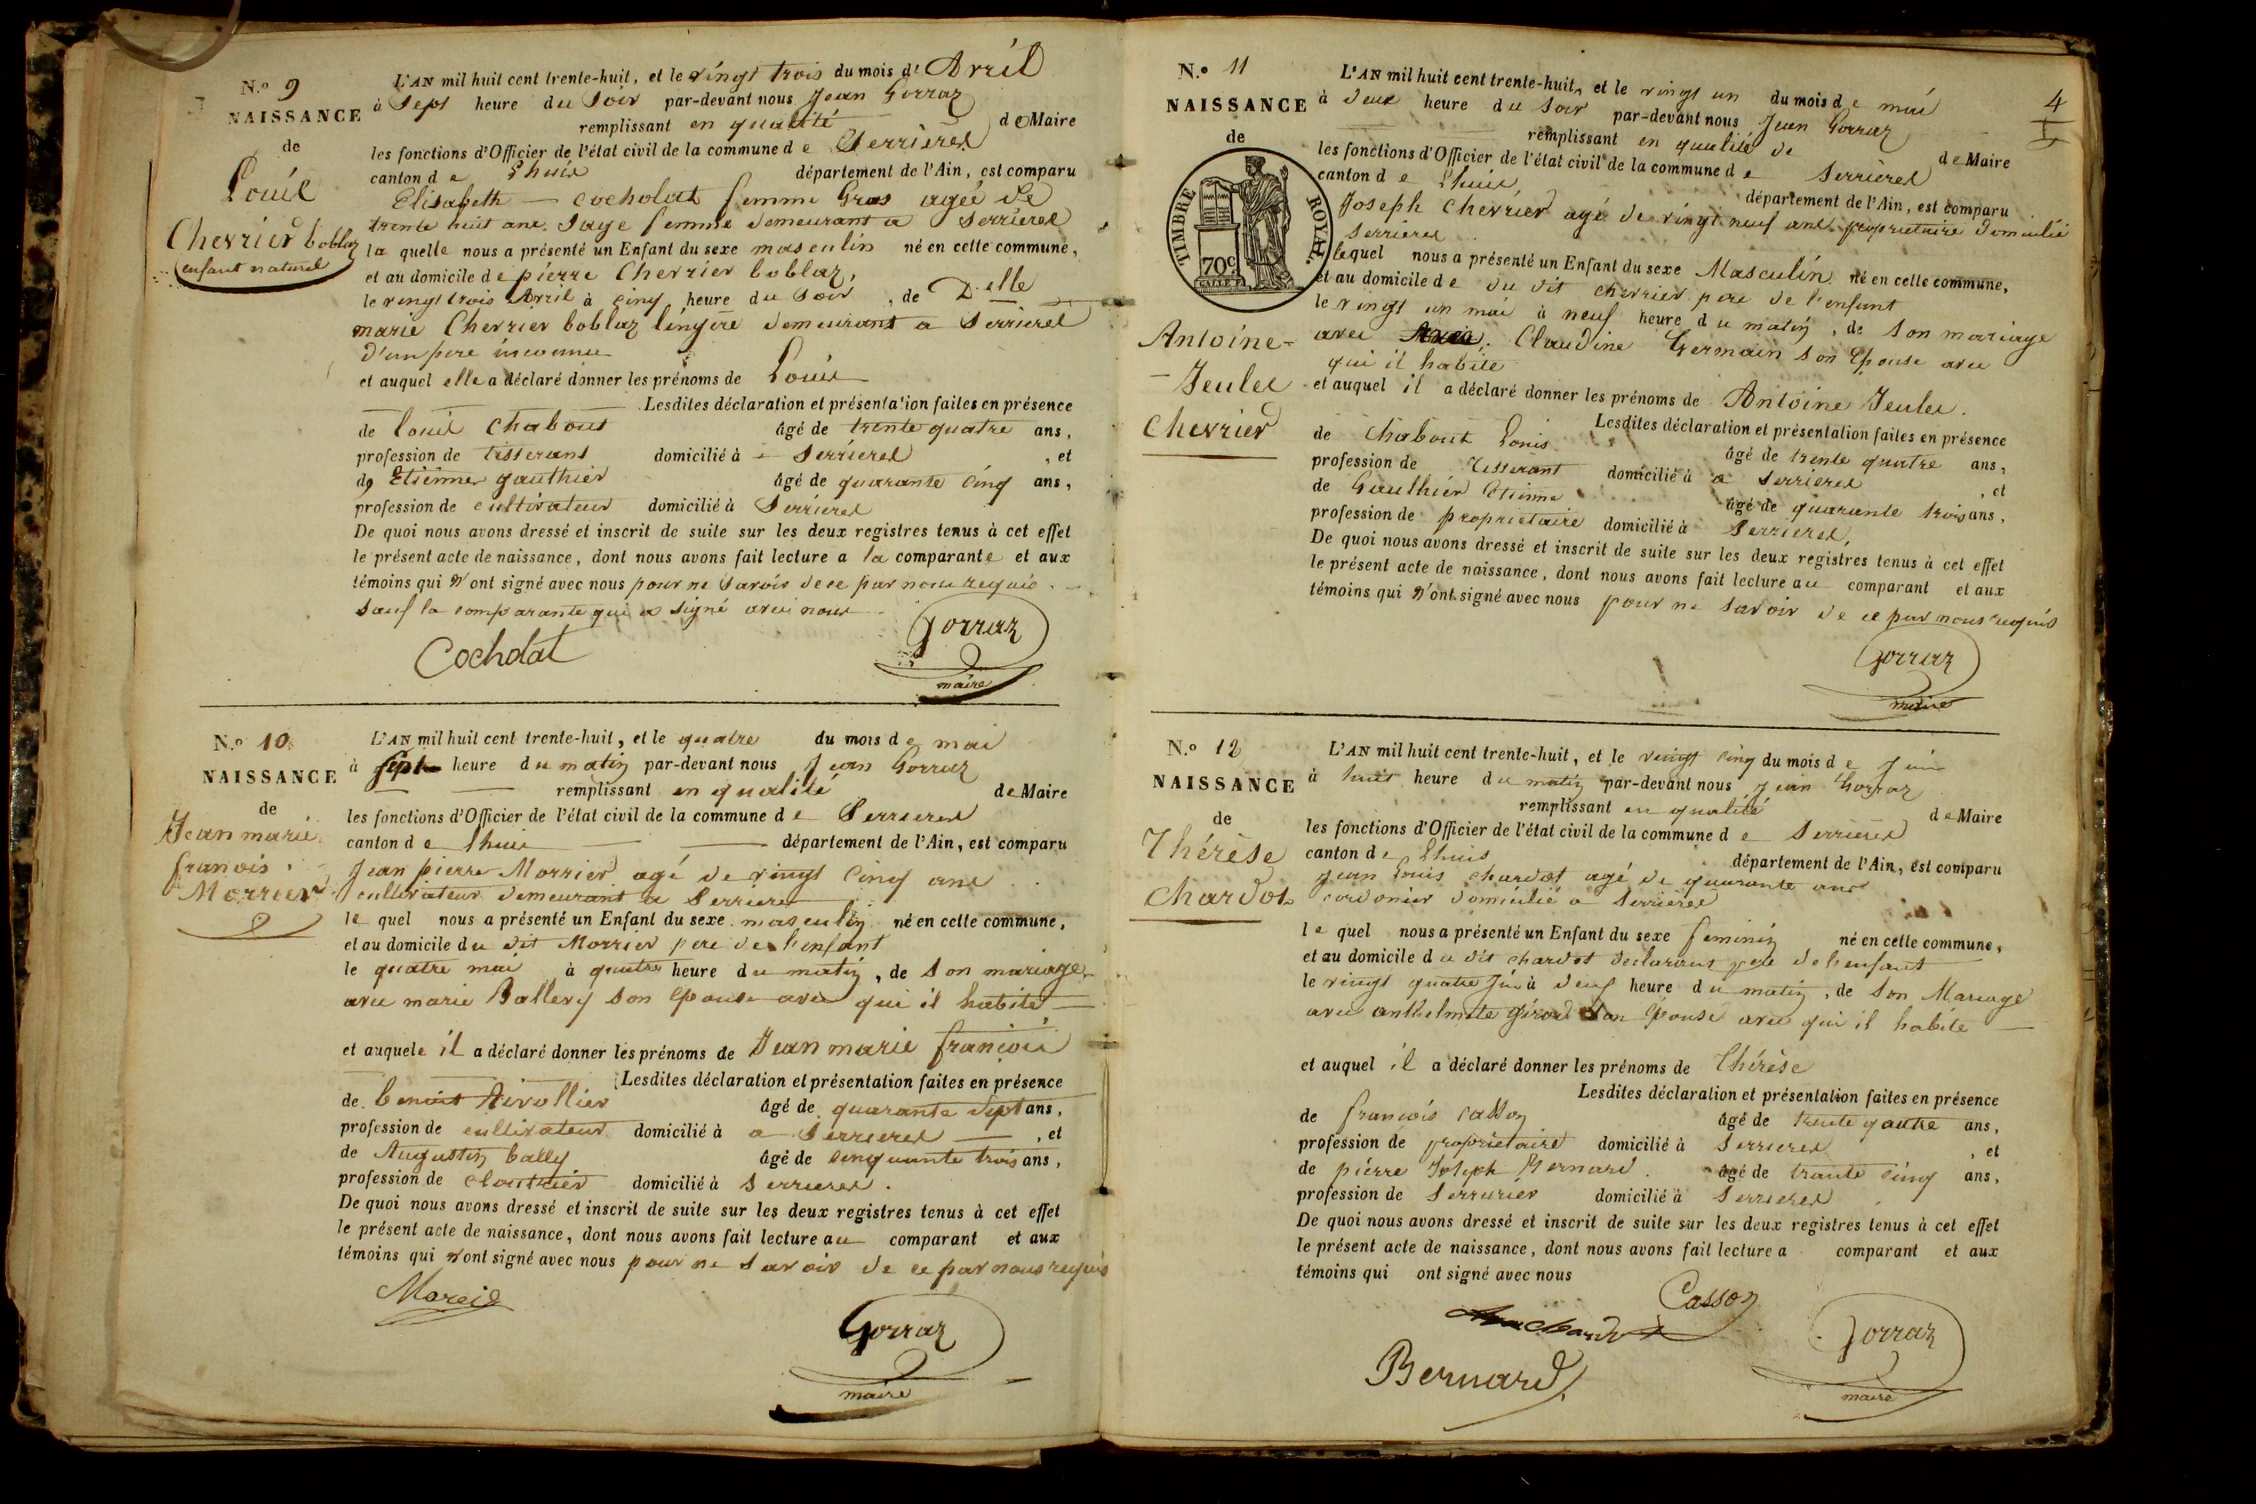 N.º 9
NAISSANCE
de
Louis
Chevrier boblaz
enfant naturel
L'AN mil huit cent trente-huit, et le vingt trois du mois d' Avril
à sept heure du soir par-devant nous Jean Gorraz
remplissant en qualité de Maire
les fonctions d'Officier de l'état civil de la commune de Serrieres
canton de Lhuis département de l'Ain, est comparu
Elisabeth cocholat femme Gras agée de
trente huit ans. Sage femme demeurant a Serrieres
la quelle nous a présenté un Enfant du sexe masculin né en cette commune,
et au domicile de pierre Chevrier boblaz,
le vingt trois Avril à cinq heure du soir, de Delle
marie Chevrier boblaz lingère demeurant a Serrieres
d'un pere inconnu
et auquel elle a déclaré donner les prénoms de Louis
Lesdites déclaration et présentation faites en présence
de louis Chabout âgé de trente quatre ans,
profession de tisserant domicilié à Serrieres, et
de Etienne gauthier âgé de quarante cinq ans,
profession de cultivateur domicilié à Serrieres
De quoi nous avons dressé et inscrit de suite sur les deux registres tenus à cet effet
le présent acte de naissance, dont nous avons fait lecture a la comparante et aux
témoins qui n'ont signé avec nous pour ne savoir de ce par nous requis.
sauf la comparante qui a signé avec nous
Cocholat
Gorraz
maire
N.º 10
NAISSANCE
de
Jean marie
franois
Morrier
L'AN mil huit cent trente-huit, et le quatre du mois de mai
à sept heure du matin par-devant nous Jean Gorraz
remplissant en qualité de Maire
les fonctions d'Officier de l'état civil de la commune de Serrieres
canton de lhuis département de l'Ain, est comparu
Jean pierre Morrier agé de vingt cinq ans
cultivateur demeurant a Serrieres
le quel nous a présenté un Enfant du sexe masculin né en cette commune,
et au domicile du dit Morrier pere de l'enfant
le quatre mai à quatre heure du matin, de son mariage
avec marie Ballery son epouse avec qui il habite
et auquele il a déclaré donner les prénoms de Jean marie françois
Lesdites déclaration et présentation faites en présence
de benoit Rivollier âgé de quarante sept ans,
profession de cultivateur domicilié à a Serrieres, et
de Augustin bally âgé de cinquante trois ans,
profession de cloutier domicilié à Serrieres.
De quoi nous avons dressé et inscrit de suite sur les deux registres tenus à cet effet
le présent acte de naissance, dont nous avons fait lecture au comparant et aux
témoins qui n'ont signé avec nous pour ne savoir de ce par nous requis
Gorraz
maire
4
N.º 11
NAISSANCE
de
TIMBRE ROYAL.
70c
Antoine-
Jeules
Chevrier
L'AN mil huit cent trente-huit, et le vingt un du mois de mai
à deux heure du soir par-devant nous Jean Gorraz
remplissant en qualité de de Maire
les fonctions d'Officier de l'état civil de la commune de Serrieres
canton de Lhuis, département de l'Ain, est comparu
Joseph Chevrier agé de vingt neuf ans proprietaire domicilié
Serrieres
lequel nous a présenté un Enfant du sexe Masculin né en cette commune,
et au domicile de du dit chevrier pere de l'enfant
le vingt un mai à neuf heure du matin, de son mariage
avec Claudine Germain son Epouse avec
qui il habite
et auquel il a déclaré donner les prénoms de Antoine Jeules.
Lesdites déclaration et présentation faites en présence
de Chabout Louis âgé de trente quatre ans,
profession de Tisserant domicilié à a Serrieres, et
de Gauthier Etienne âgé de quarante trois ans,
profession de proprietaire domicilié à Serrieres,
De quoi nous avons dressé et inscrit de suite sur les deux registres tenus à cet effet
le présent acte de naissance, dont nous avons fait lecture au comparant et aux
témoins qui n'ont signé avec nous pour ne savoir de ce par nous requis
Gorraz
maire
N.º 12
NAISSANCE
de
Thérèse
Chardot
L'AN mil huit cent trente-huit, et le vingt cinq du mois de Juin
à huit heure du matin par-devant nous Jean Gorraz
remplissant en qualité de Maire
les fonctions d'Officier de l'état civil de la commune de Serrieres
canton de Lhuis département de l'Ain, est comparu
Jean Louis chardot agé de quarante ans
cordonier domicilié a Serrieres
le quel nous a présenté un Enfant du sexe feminin né en cette commune,
et au domicile du dit chardot declarant pere de l'enfant
le vingt quatre Juin à neuf heure du matin, de son Mariage
avec anthelmete girod son Epouse avec qui il habite
et auquel il a déclaré donner les prénoms de Thérèse
Lesdites déclaration et présentation faites en présence
de francois casson âgé de trente qautre ans,
profession de proprietaire domicilié à Serrieres, et
de pierre Joseph Bernard. âgé de trante cinq ans,
profession de Serrurier domicilié à Serrieres
De quoi nous avons dressé et inscrit de suite sur les deux registres tenus à cet effet
le présent acte de naissance, dont nous avons fait lecture a comparant et aux
témoins qui ont signé avec nous
Casson
chardot
Gorraz
maire
Bernard